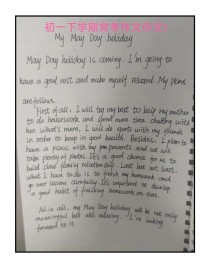 初一下学期常考作文范文1
My May Day holiday
May Day holiday is coming. I'm going to
have a good rest and make myself relaxed. My plans
are follows.
First of all, I will try my best to help my mother
to do housework and spend more time chatting with
her. What's more, I will do sports with my friends
in order to keep in good health. Besides, I plan to
have a picnic with my parents and we will
take plenty of photos. It's a good chance for us to
build close family relationship. Last but not least,
what I have to do is finish my homework and
go over lessons carefully. It's important to develop
a good habit of finishing homework on time.
All in all, my May Day holiday will be not only
meaningful but also relaxing. I'm looking
forward to it.